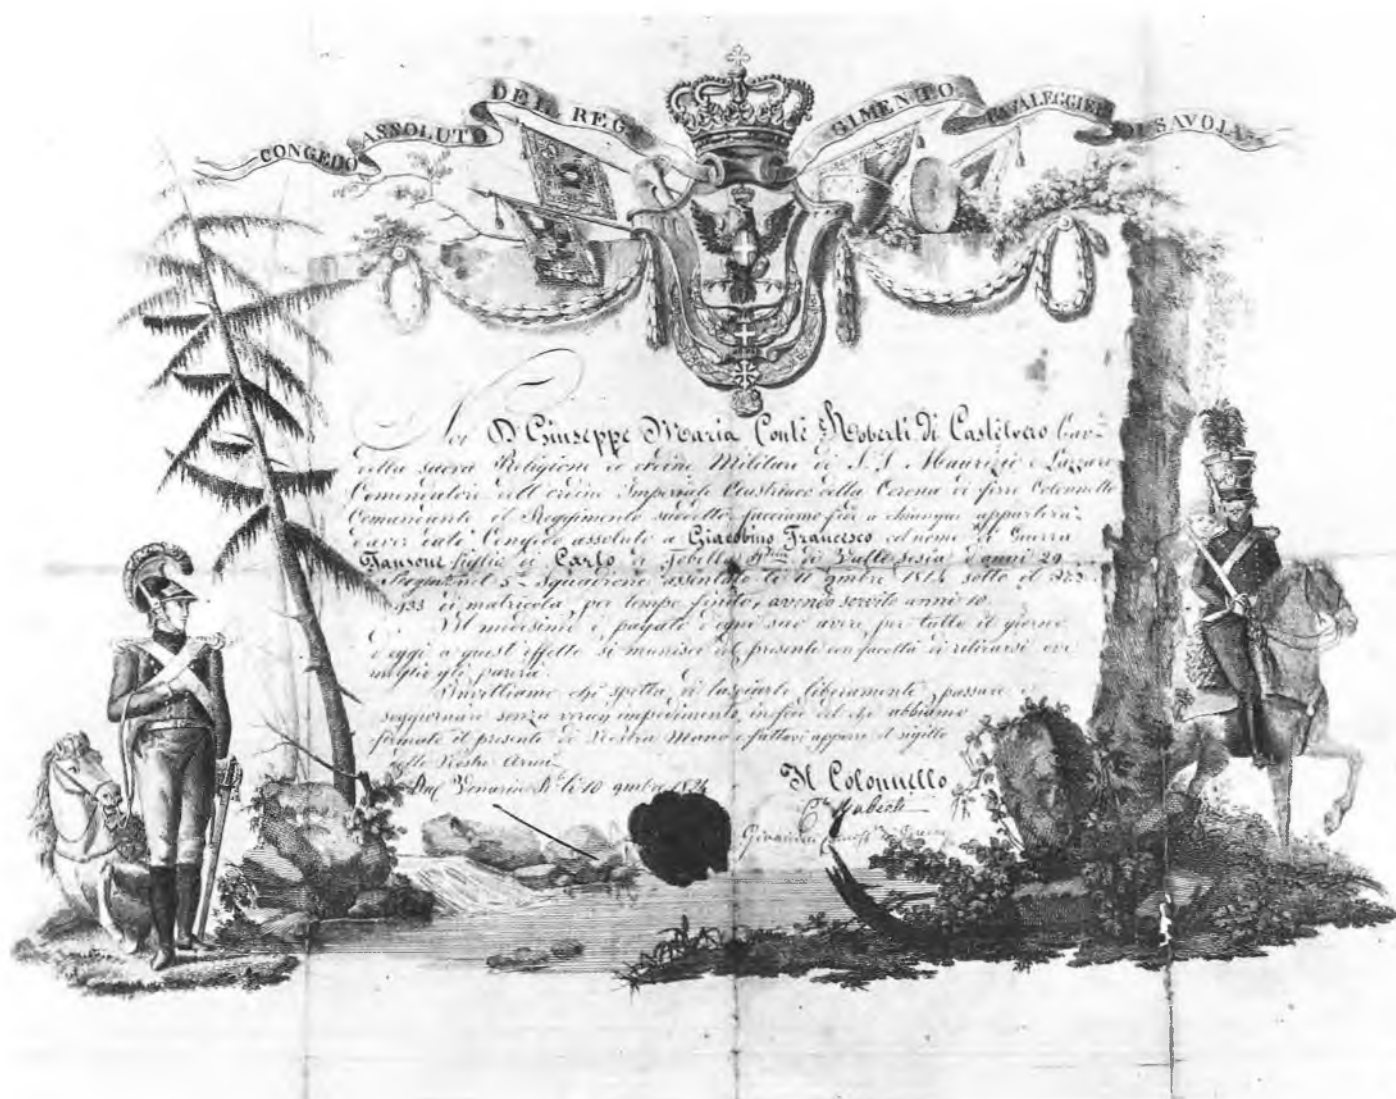 CONGEDO ASSOLUTO DEL REGGIMENTO CAVALEGGIERI DI SAVOIA
Noi D Giuseppe Maria Conte Roberti di Castelvero Cav.
della sacra Religione ed ordine Militare di S. S. Maurizio e Lazzaro
Comendatore dell'ordine Imperiale Austriaco della Corona di ferro Colonnello
Comandante il Reggimento suddetto, facciamo fede a chiunque apparterà
d'aver dato Congedo assoluto a Giacobino Francesco col nome di Guerra
figlio di Carlo di Fobello di Valle Sesia d'anni 29
nel 5 Squadrone assentato li 11 9mbre 1814 sotto il
933 di matricola, per tempo finito, avendo servito anni 10
Il medesimo è pagato d'ogni suo avere per tutto il giorno
d'oggi a quest'effetto si munisce del presente con facoltà di ritirarsi ove
meglio gli parerà.
Invittiamo chi spetta, di lasciarlo liberamente passare e
soggiornare senza verun impedimento, in fede del che abbiamo
firmato il presente di Nostra Mano e fattovi apporre il sigillo
delle Nostre Armi
Dal Venaria li 10 9mbre 1824
Il Colonnello
Roberti